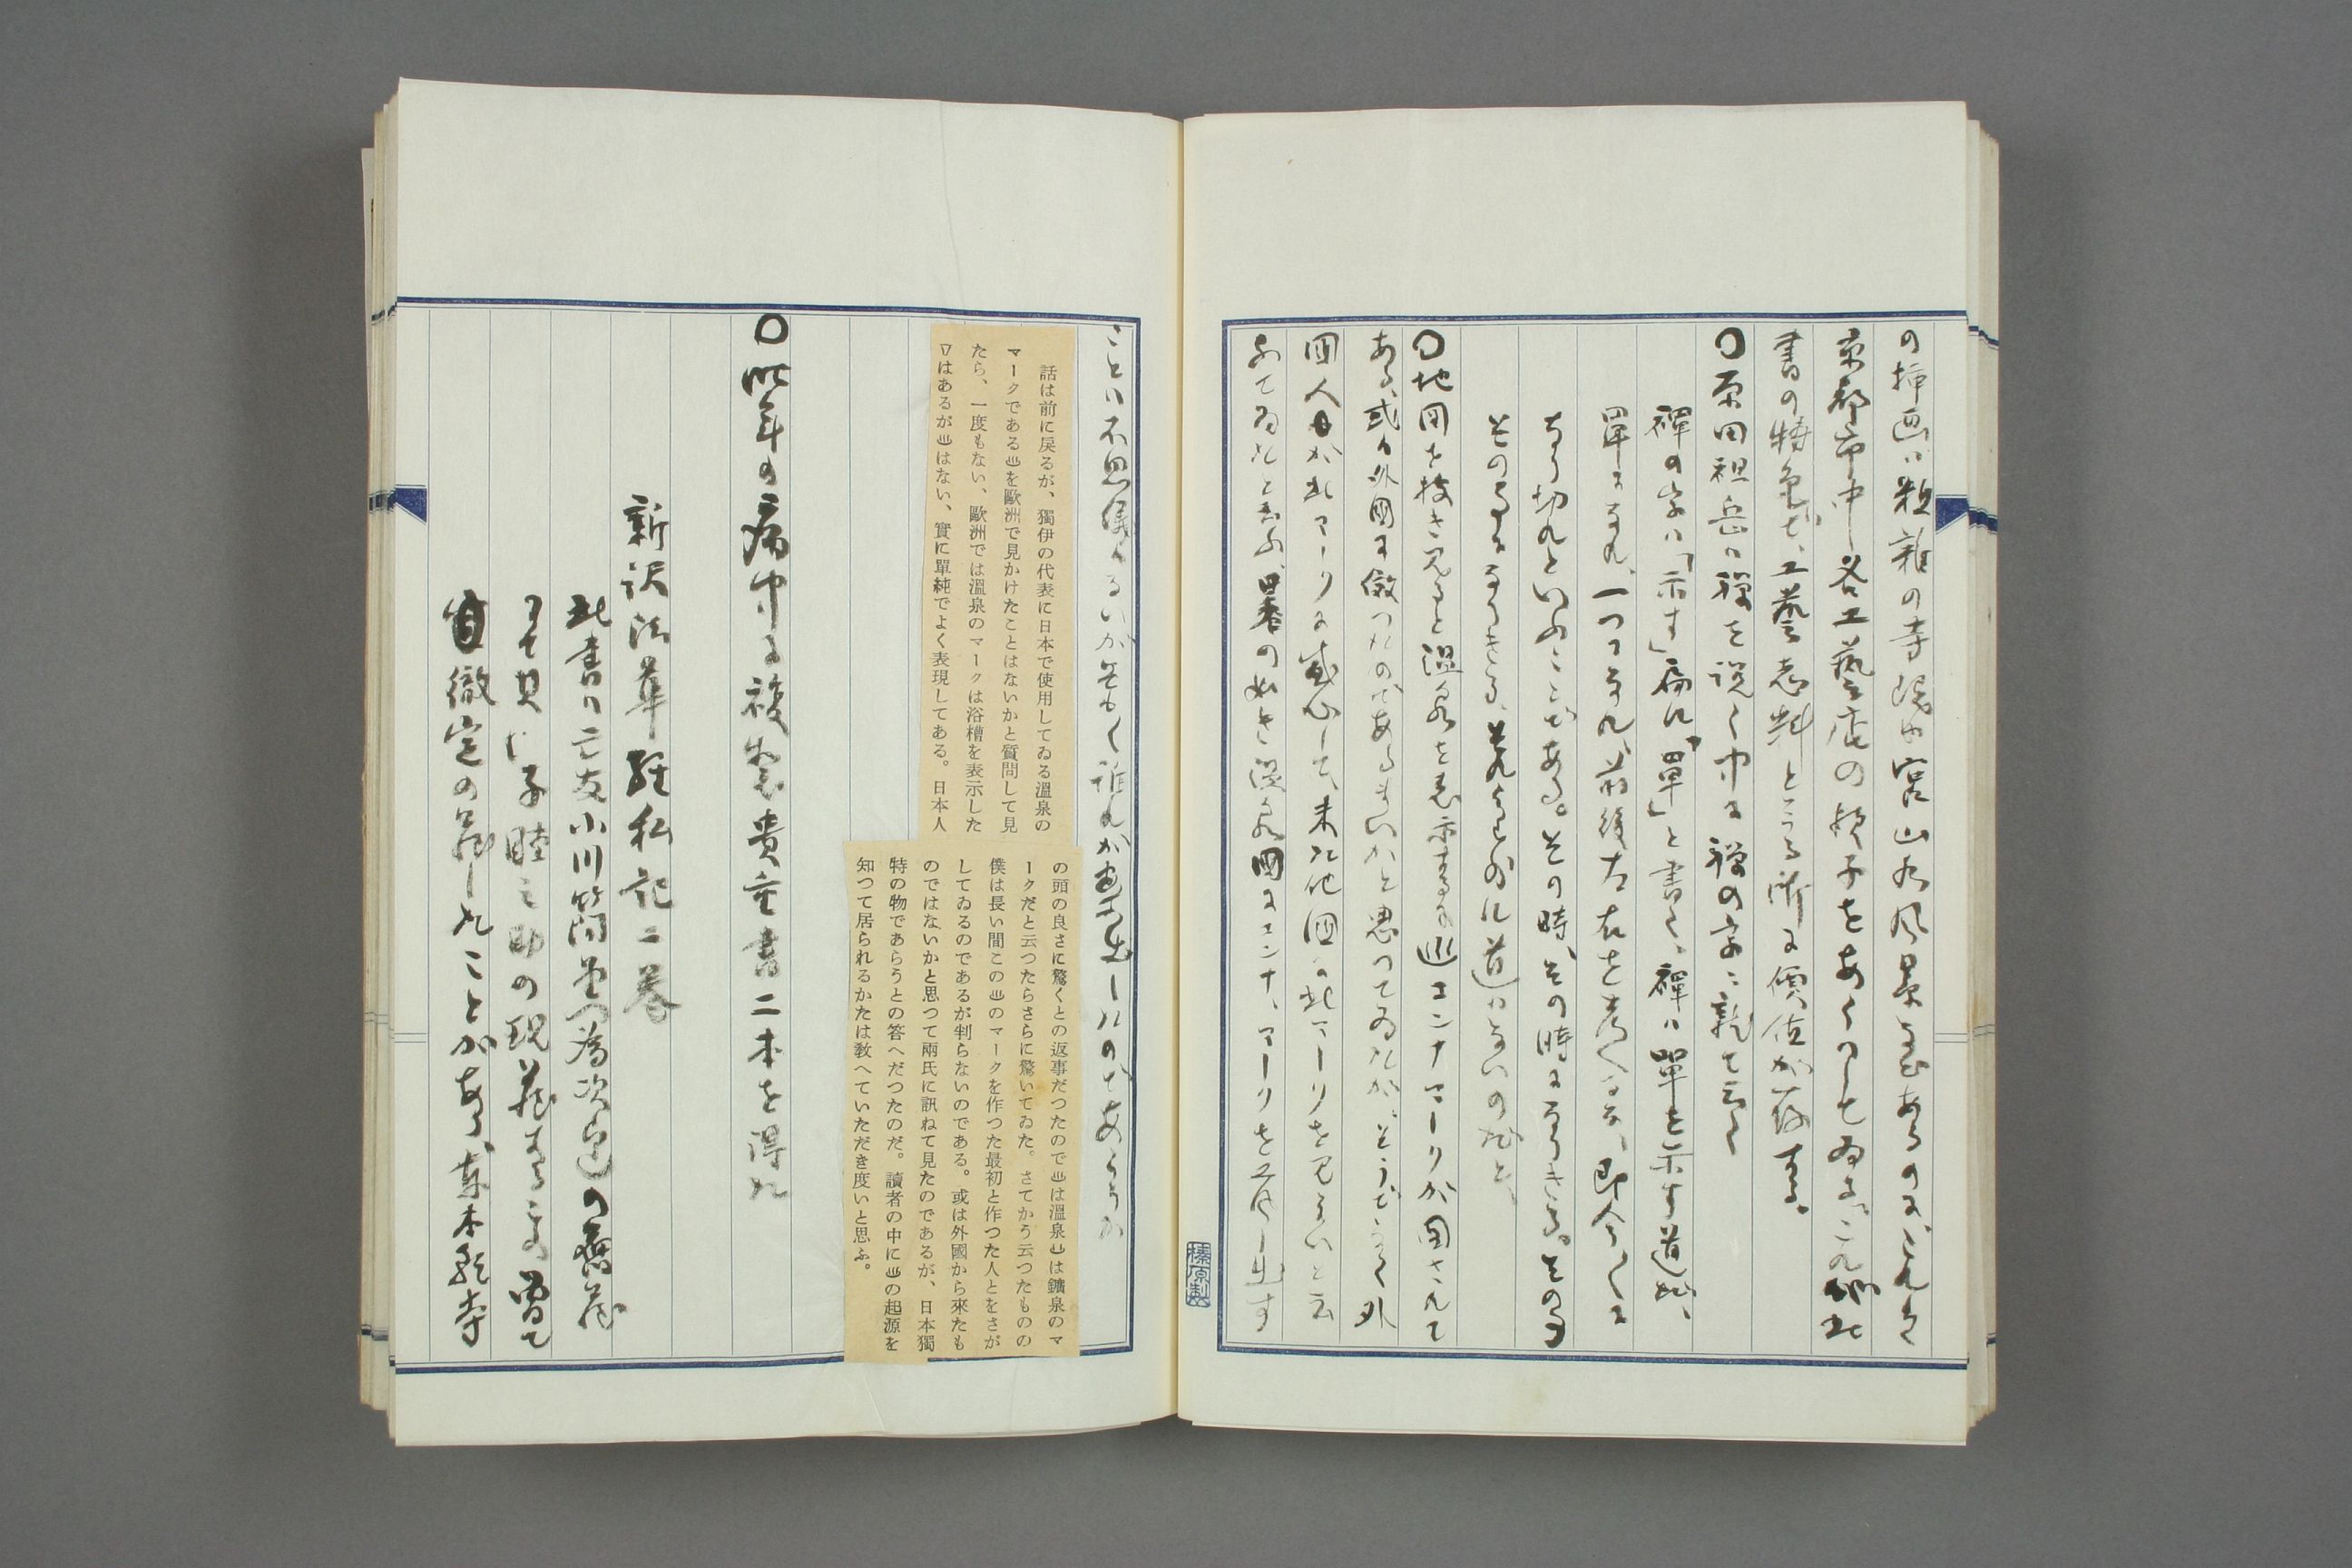 の挿画は粗雑の寺院や宮山水風景画あるのみ、これを
京都市中各工藝店の様子をあらはしてゐる、これ此
書の特色で、工藝志料とする所に價値が存する。
〇原田祖岳は禅を説く中に禅の字に就て云く
禪の字は「示す」扁に「單」と書く、禪は單を示す道だ、
單になれ、一つになれ、前後左右を考へるな、即今〱に
なり切れといふことである。その時、その時になりきる。その
そのまゝになりきる、それより外に道はないのだと、
〇地図を披き見ると温泉を表示するに♨コンナマークが図されて
ある、或は外国に倣つたのであるまいかと思つてゐたが、どうでもなく外
国人が此マークに感心して、未だ他国に此マークを見ないと云
ふてゐたと云ふ、日本の如き温泉国にコンナ、マークを考へ出す
ことは不思儀でないが兎も角誰れが画き出したのであらうか
話は前に戻るが、獨伊の代表に日本で使用してゐる溫泉の
マークである♨を歐洲で見かけたことはないかと質問して見
たら、一度もない、歐洲では溫泉のマークは浴槽を表示した
ワはあるが♨はない、實に單純でよく表現してある。日本人
の頭の良さに驚くとの返事だつたので♨は溫泉♨は鑛泉のマ
ークだと云つたらさらに驚いてゐた。さてかう云つたものの
僕は長い間この♨のマークを作つた最初と作つた人とをさが
してゐるのであるが判らないのである。或は外國から來たも
のではないかと思つて兩氏に訊ねて見たのであるが、日本獨
特の物であらうとの答へだつたのだ。讀者の中に♨の起源を
知つて居られるかたは敎へていただき度いと思ふ。
〇昨年の病中に複製貴重書二本を得た
新訳法華経私記二巻
此書は亡友小川簡斎為次郎の舊蔵
にて其 子睦之助の現蔵するもの曽て
徹定の蔵したことがある、東本願寺
榛原製